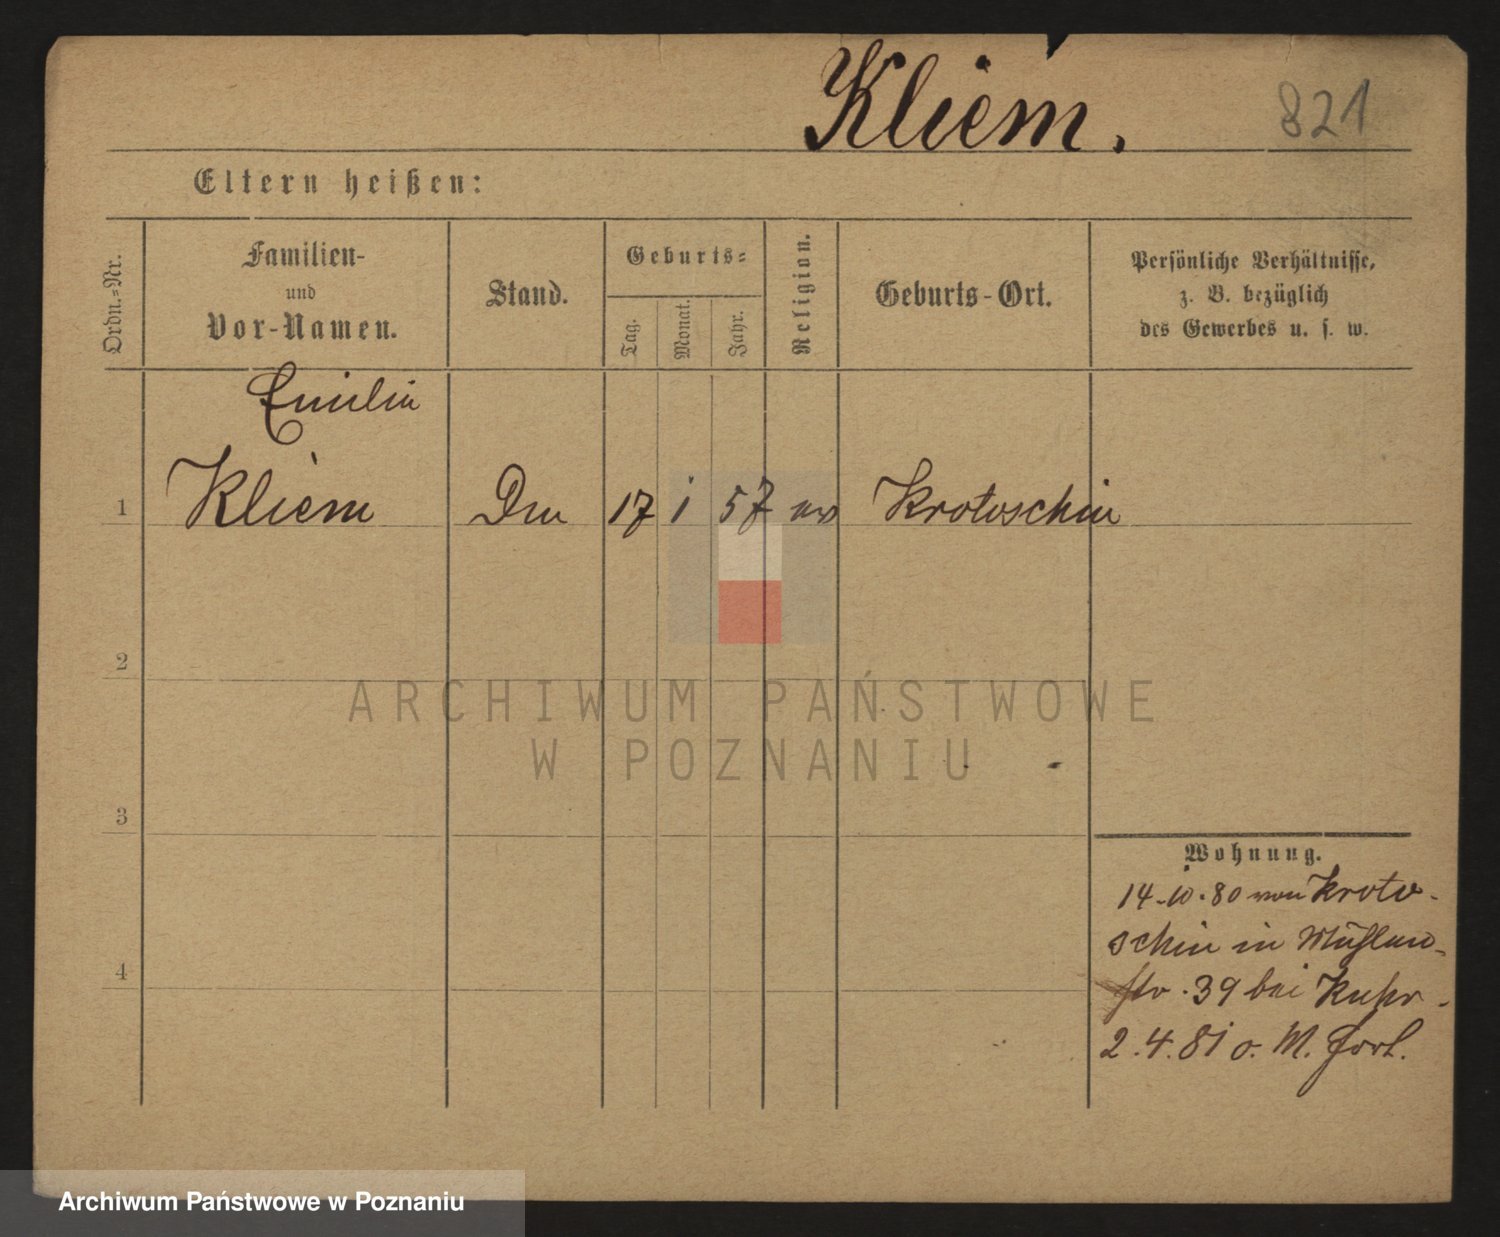 Kliem.
821
Eltern heißen:
Ordn.-Nr.
Familien-
und
Vor-Namen.
Stand.
Geburts-
Tag.
Monat.
Jahr.
Religion.
Geburts-Ort.
Persönliche Verhältnisse,
z. B. bezüglich
des Gewerbes u. s. w.
Emilie
1 Kliem 17 1 57 Krotoschin
2
3
4
Wohnung.
14.10.80 von Kroto-
schin in Mühlen-
str. 39 bei Kuhr-
2.4.81 o. M. fort.
ARCHIWUM PAŃSTWOWE
W POZNANIU
Archiwum Państwowe w Poznaniu